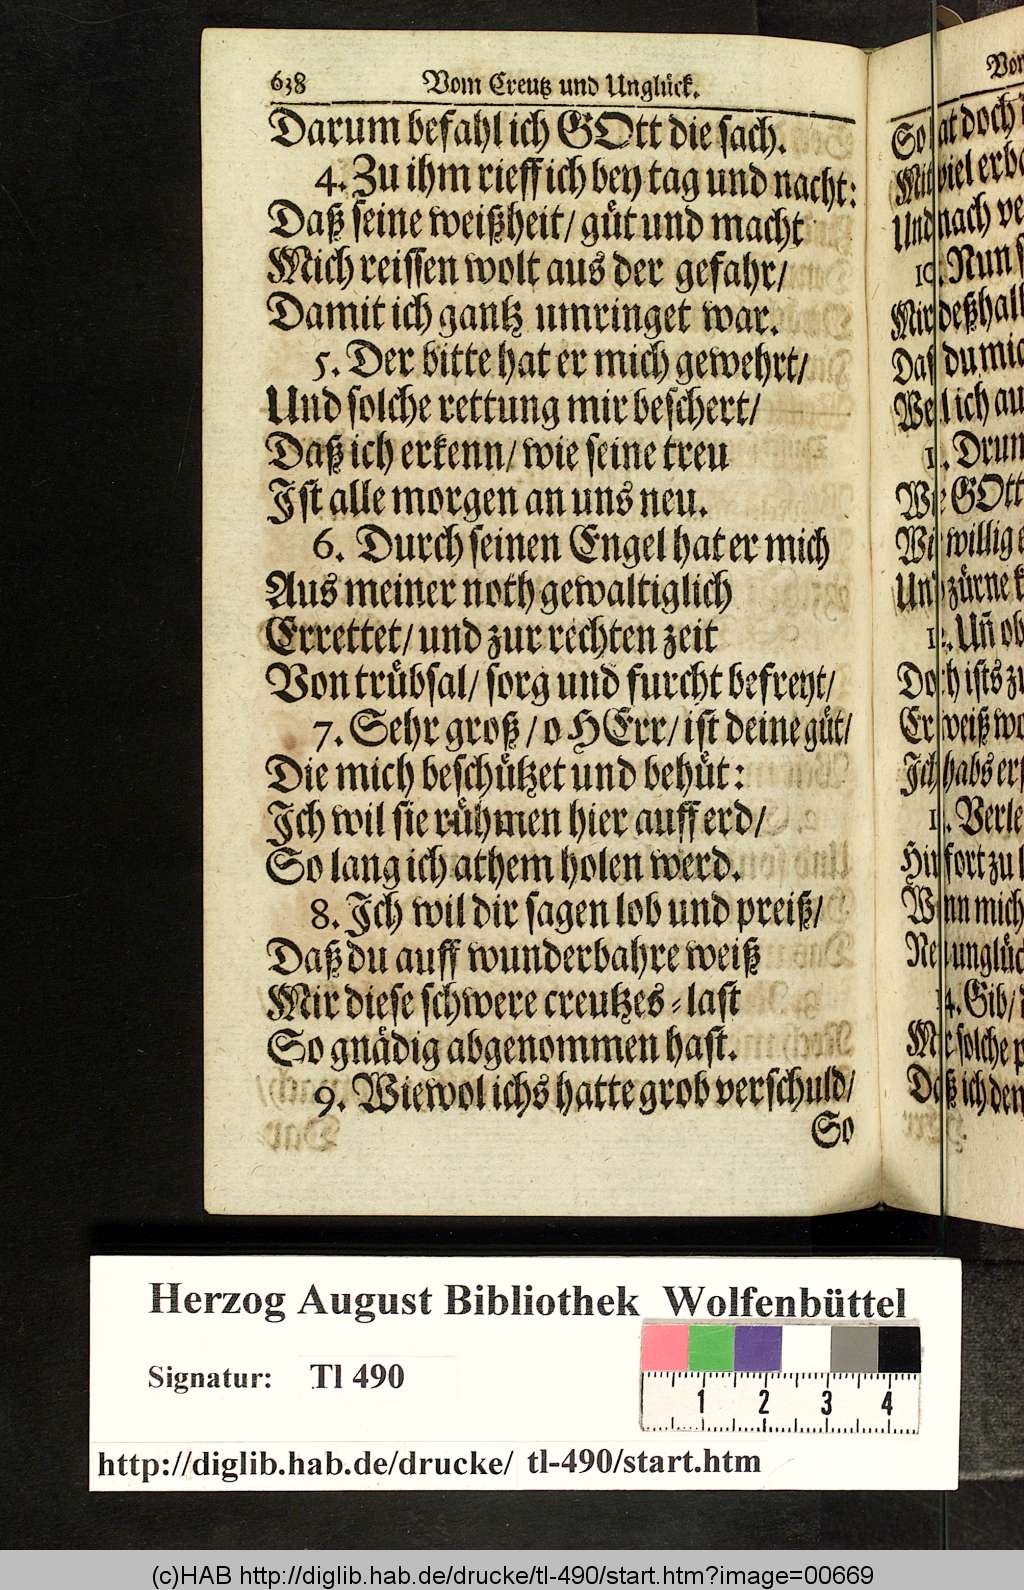 638 Vom Creutz und Unglück.
Darum befahl ich GOtt die sach.
4. Zu ihm rieff ich bey tag und nacht:
Daß seine weißheit/ güt und macht
Mich reissen wolt aus der gefahr/
Damit ich gantz umringet war.
5. Der bitte hat er mich gewehrt/
Und solche rettung mir beschert/
Daß ich erkenn/ wie seine treu
Ist alle morgen an uns neu.
6. Durch seinen Engel hat er mich
Aus meiner noth gewaltiglich
Errettet/ und zur rechten zeit
Von trübsal/ sorg und furcht befreyt/
7. Sehr groß/ o HErr/ ist deine güt/
Die mich beschützet und behüt:
Ich wil sie rühmen hier auff erd/
So lang ich athem holen werd.
8. Ich wil dir sagen lob und preiß/
Daß du auff wunderbahre weiß
Mir diese schwere creutzes-last
So gnädig abgenommen hast.
9. Wiewol ichs hatte grob verschuld/
So
So hat doch
Mit viel
Und nach
10. Nun
Mir deßhalb
Daß du mich
Weil ich
11. Drum
Wie GOtt
Wie willig
Und zürne
12. Uñ ob
Doch ists zu
Er weiß
Ich habs
13. Verle
Hinfort zu
Wenn mich
Neu unglück
14. Gib/
Mir solche
Daß ich den
Herzog August Bibliothek Wolfenbüttel
Signatur: Tl 490
1 2 3 4
http://diglib.hab.de/drucke/ tl-490/start.htm
(c)HAB http://diglib.hab.de/drucke/tl-490/start.htm?image=00669